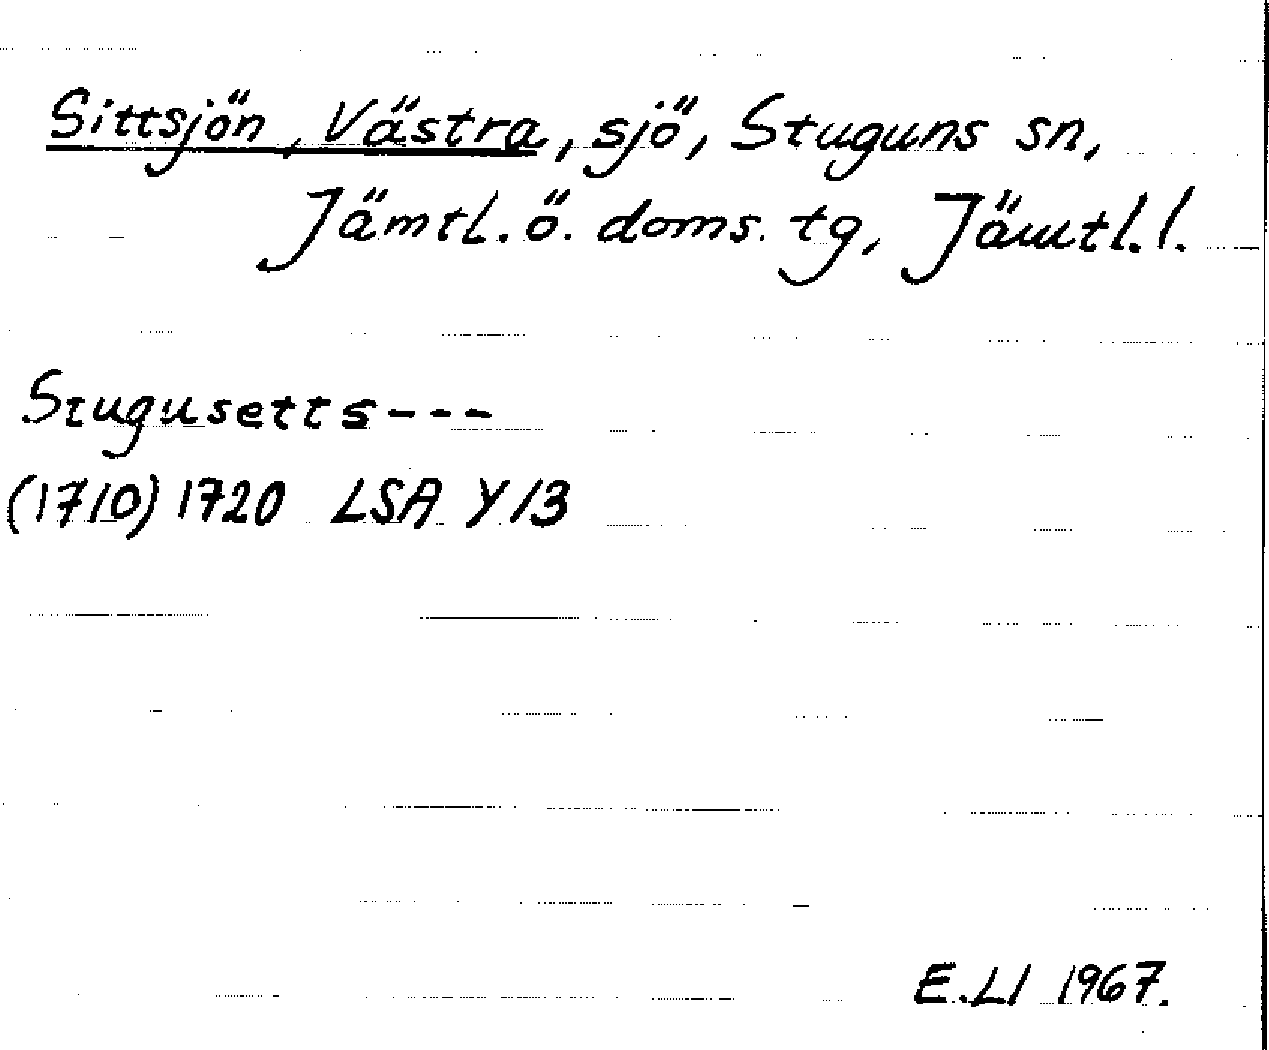 Sittsjön, Västra, sjö, Stuguns sn,
Jämtl. ö. doms. tg, Jämtl. l.
Stugusetts---
(1710) 1720 LSA Y13
E.Ll 1967.